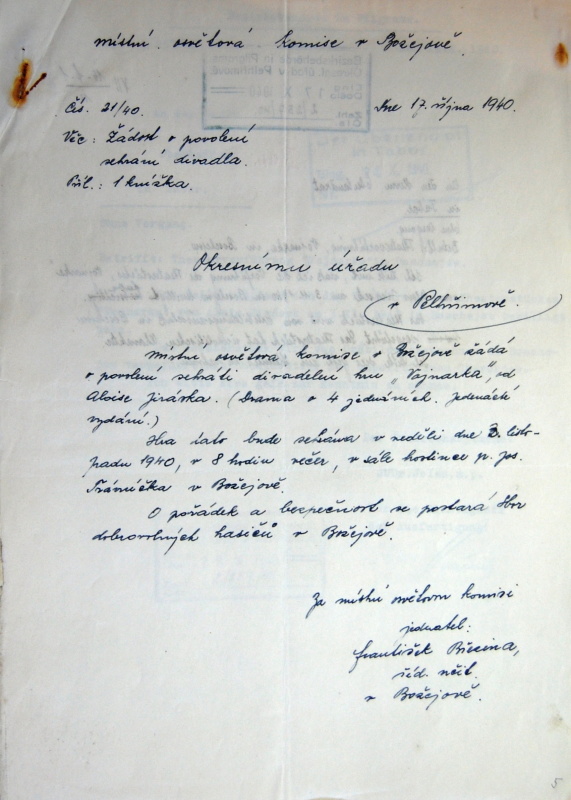 Místní osvětová komise v Božejově.
Čís. 21/40.
Dne 17. října 1940.
Věc: Žádost o povolení
sehrání divadla.
Příl.: 1 knížka.
Okresnímu úřadu
v Pelhřimově.
Místní osvětová komise v Božejově žádá
o povolení sehráti divadelní hru „Vojnarka", od
Aloise Jiráska. (Drama o 4 jednáních. Jedenácté
vydání.)
Hra tato bude sehrána v neděli dne 3. listo-
padu 1940, v 8 hodin večer, v sále hostince p. Jos.
Trávníčka v Božejově.
O pořádek a bezpečnost se postará Sbor
dobrovolných hasičů v Božejově.
Za místní osvětovou komisi
jednatel:
František Březina,
říd. učit.
v Božejově.
5